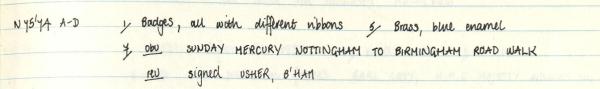 NYS'74 A-D 1, Badges, all with different ribbons 5, Brass, blue enamel
7, obv SUNDAY MERCURY NOTTINGHAM TO BIRMINGHAM ROAD WALK
rev signed USHER, B'HAM